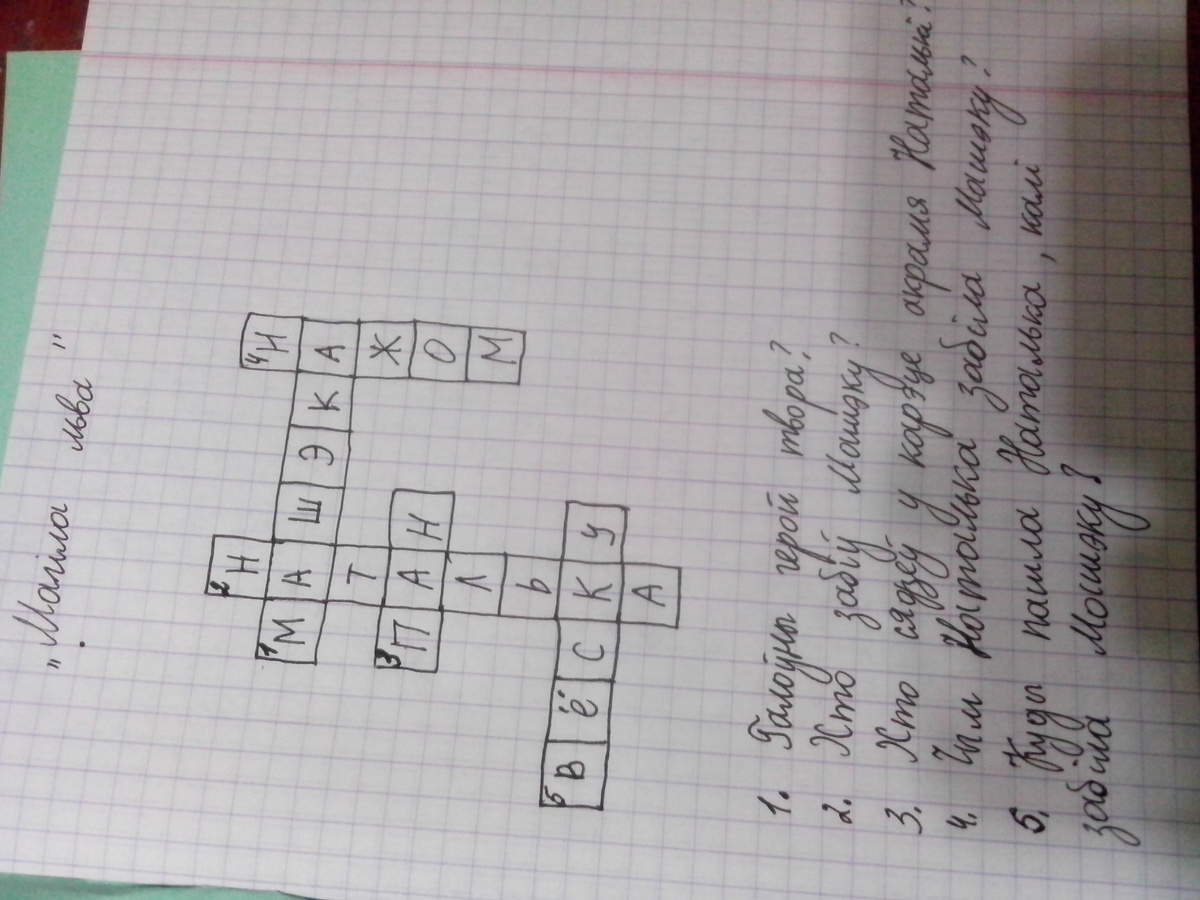 „Магіла льва"
2 Н 4 Н
1 М А Ш Э К А
Т Ж
3 П А Н О
Л М
Ь
5 В Ё С К У
А
1. Галоўны герой твора?
2. Хто забіў Машэку?
3. Хто сядзеў у карэце акрамя Наталькі?
4. Чым Наталька забіла Машэку?
5. Куды пашла Наталька, калі
забіла Машэку?